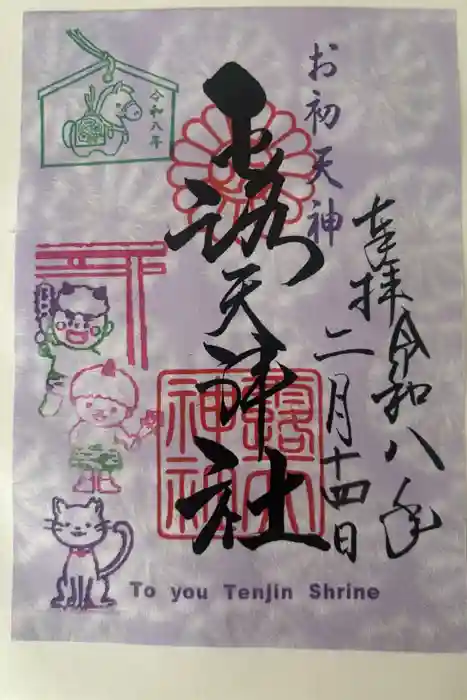 奉拝
令和八年
二月十四日
お初天神
露天神社
令和八年
露天
神社
To you Tenjin Shrine